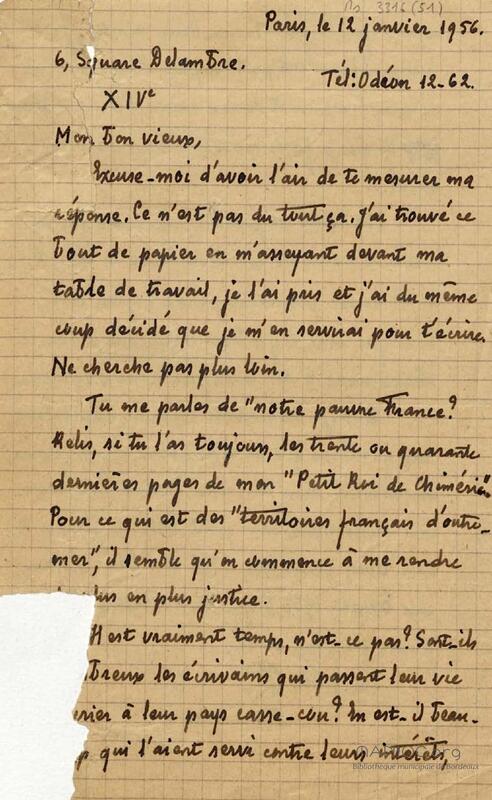 Ms 3316 (51)
Paris, le 12 janvier 1956.
6, Square Delambre.
Tél: Odéon 12-62.
XIVe
Mon bon vieux,
Excuse-moi d'avoir l'air de te mesurer ma
réponse. Ce n'est pas du tout ça. J'ai trouvé ce
bout de papier en m'asseyant devant ma
table de travail, je l'ai pris et j'ai du même
coup décidé que je m'en servirai pour t'écrire.
Ne cherche pas plus loin.
Tu me parles de "notre pauvre France?
Relis, si tu l'as toujours, les trente ou quarante
dernières pages de mon "Petit Roi de Chimérie"
Pour ce qui est des "territoires français d'outre-
mer", il semble qu'on commence à me rendre
plus en plus justice.
Il est vraiment temps, n'est-ce pas? Sont-ils
breux les écrivains qui passent leur vie
crier à leur pays casse-cou? En est-il beau-
p qui l'aient servi contre leurs intérêts,
Bibliothèque municipale de Bordeaux